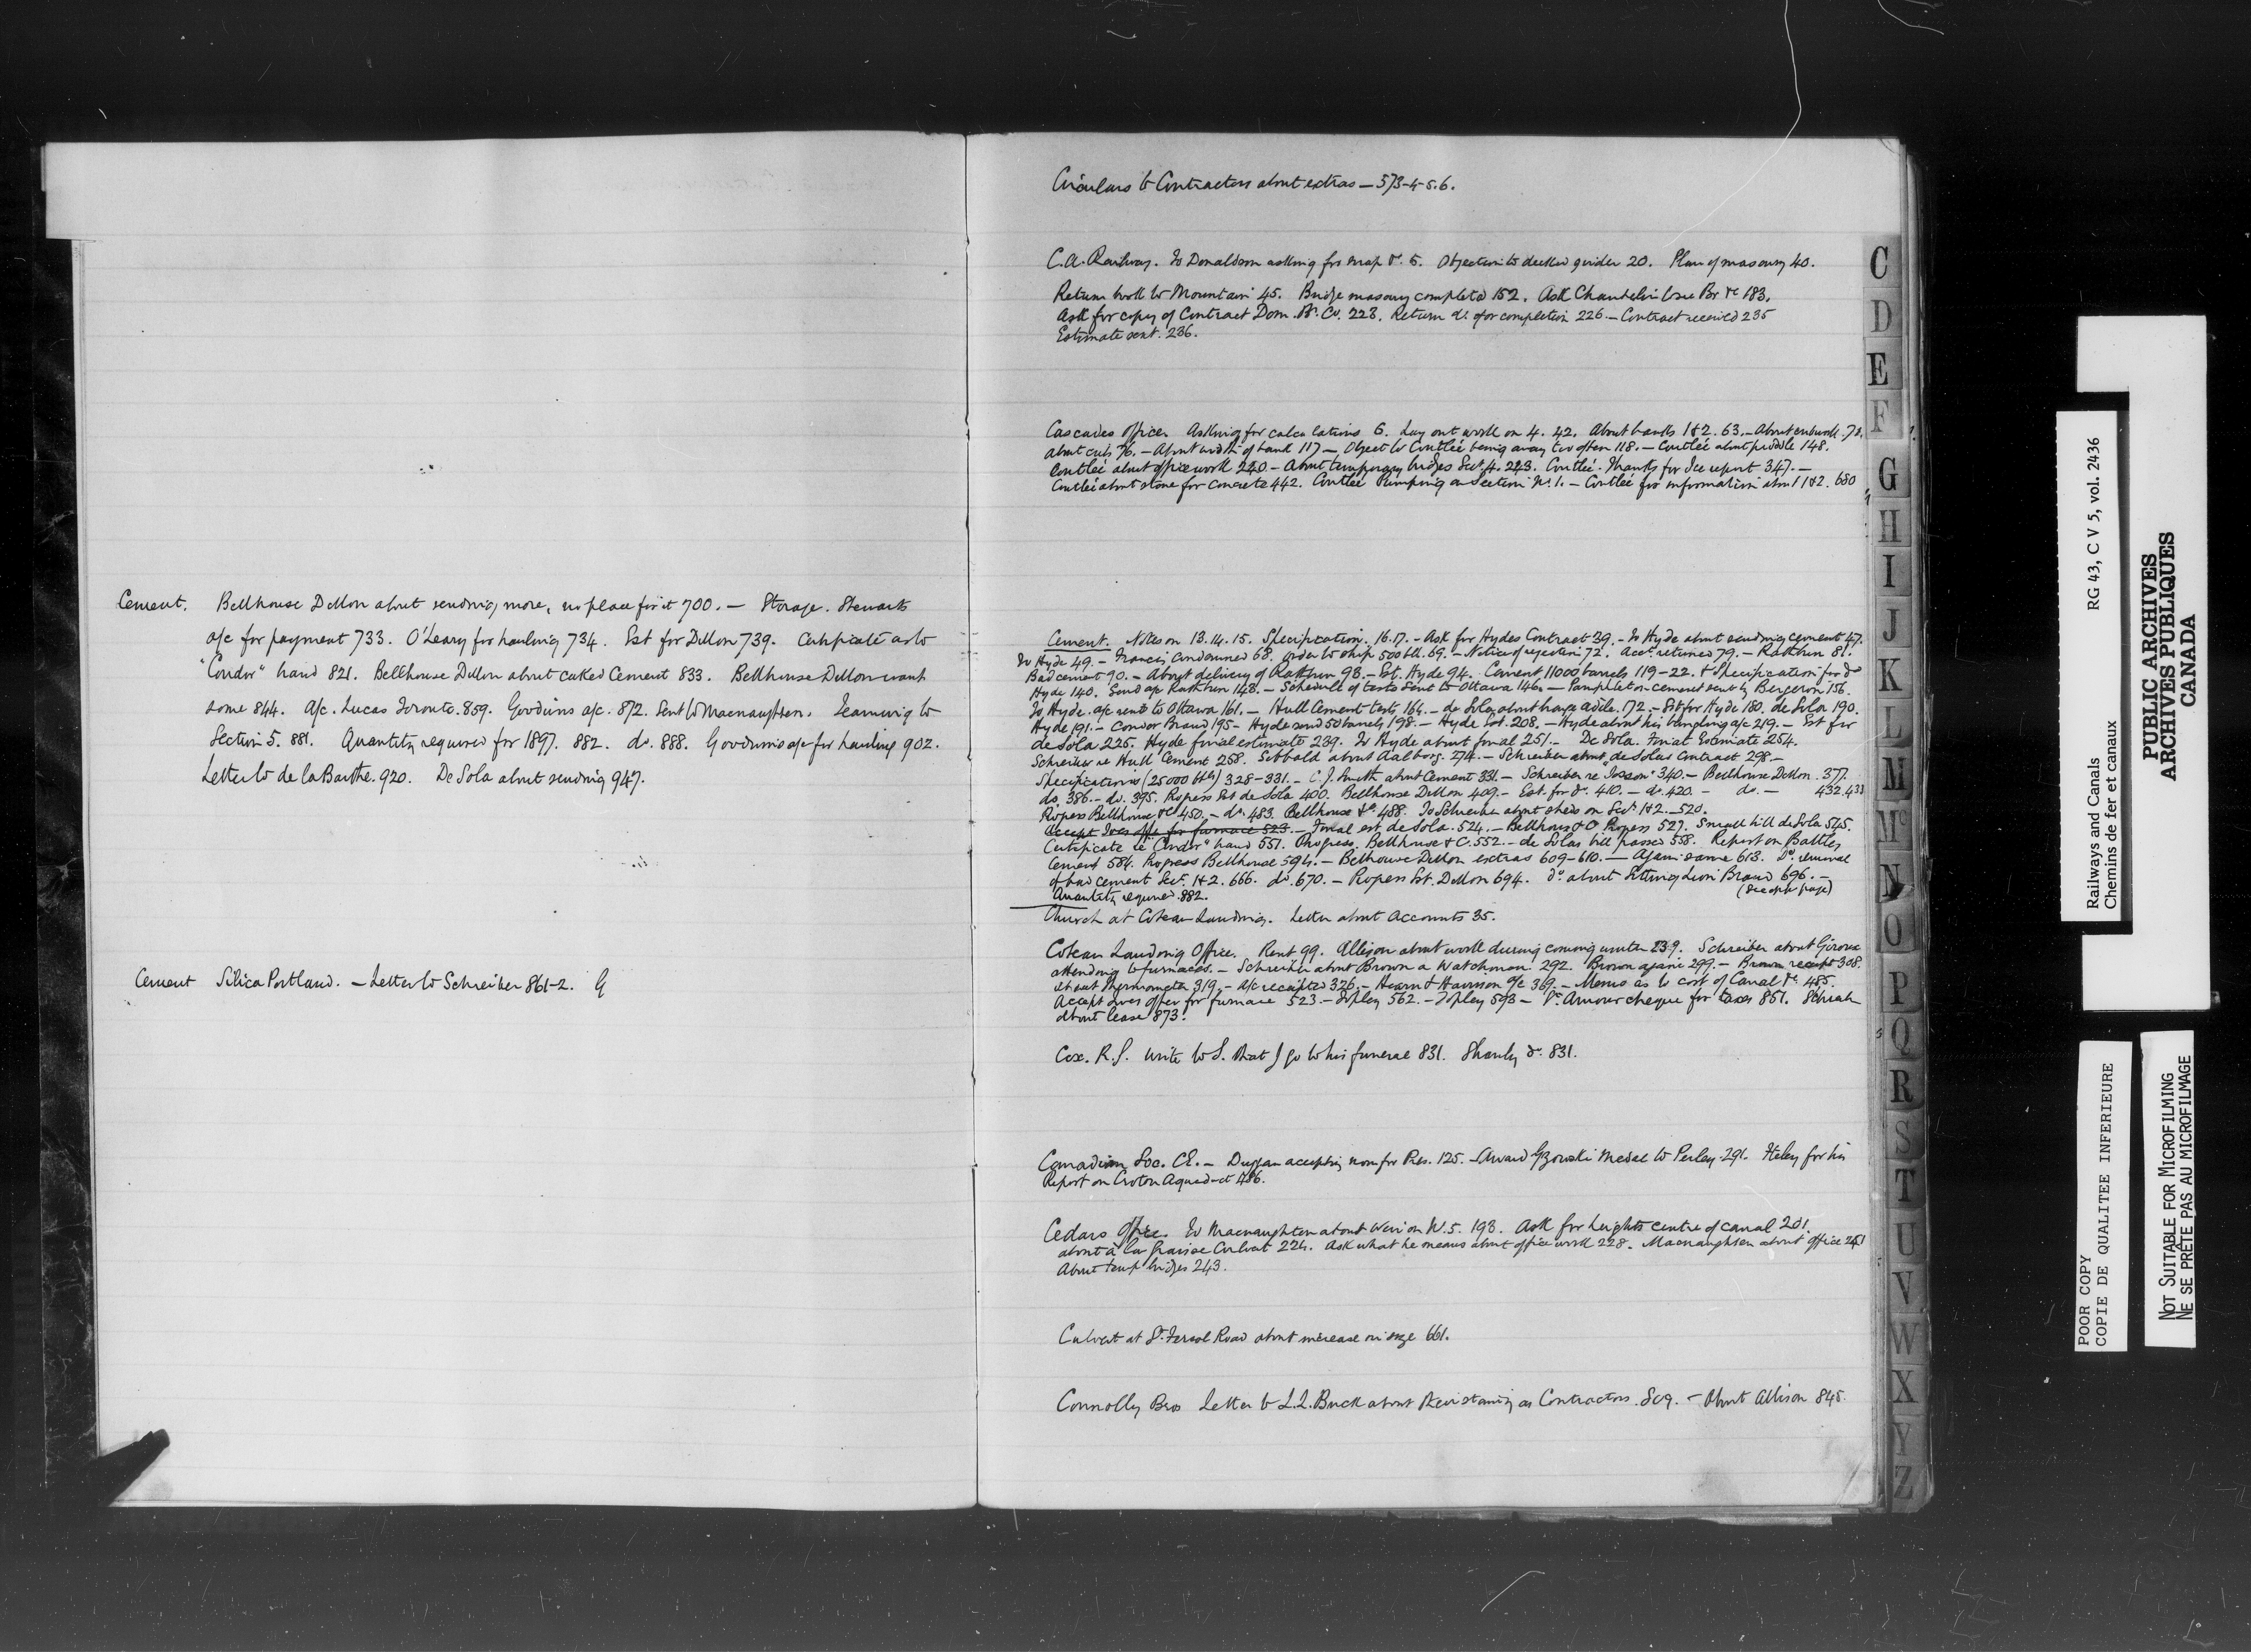 Cement. Bellhouse Dillon about sending more, no place for it 700. — Storage. Stewarts
a/c for payment 733. O'Leary for hauling 734. Est for Dillon 739. Certificate as to
"Condor" brand 821. Bellhouse Dillon about caked Cement 833. Bellhouse Dillon want
some 844. A/c. Lucas Toronto. 859. Goodwins a/c. 872. Sent to Macnaughton. Teaming to
Section 5. 881. Quantity required for 1897. 882. do. 888. Goodwins a/c for hauling 902.
Letter to de la Barthe. 920. De Sola about sending 947.
Cement Silica Portland. — Letter to Schreiber 861-2.
Circulars to Contractors about extras — 573-4-5.6.
C.A. Railway. To Donaldson asking for map &c. 5. Objection to decked girder 20. Plan of masonry 40.
Return book to Mountain 45. Bridge masonry completed 152. Ask to see Br &c 183.
Ask for copy of Contract Dom. Br. Co. 223. Return do. for completion 226. — Contract received 235
Estimate sent. 236.
Cascades Office. Asking for calculations 6. Lay out work on 4. 42. About banks 1&2. 63. — About
about culs 76. — About width of bank 117 — Object to Coutlée being away too often 118. — Coutlée about puddle 148.
Coutlée about office work 220 — About temporary bridges Sec. 4. 223. Coutlée. Thanks for Ice report 347. —
Coutlée about stone for concrete 442. Coutlée Pumping on Section No. 1. — Coutlée for information about 1&2. 680
Cement. Notes on 13.14.15. Specification. 16.17. — Ask for Hydes Contract 39. — To Hyde about sending cement 47.
To Hyde 49. — Francis condemned 68. order to ship 500 bbl. 69. — Notice of rejection 72. Acct. returned 79. — Rathbun 81.
Bad cement 90. — About delivery of Rathbun 93. — Est. Hyde 94. Cement 11000 barrels 119-22. & Specification for do
Hyde 140. Send a/c Rathbun 148. — Schedule of tests sent to Ottawa 146. — Pamphlet on cement sent by Bergeron 156.
To Hyde. a/c sent to Ottawa 161. — Hull Cement tests 164. — de Sola about 172. — Est for Hyde 180. de Sola 190.
Hyde 191. — Condor Brand 195 — Hyde send 50 barrels 198. — Hyde Est. 208. — Hyde about his a/c 219. — Est for
de Sola 225. Hyde final estimate 239. To Hyde about final 251. — De Sola. Final Estimate 254.
Schreiber re Hull Cement 258. Sibbald about Aalborg. 274. — Schreiber about de Solas Contract 298. —
Specifications (25000 bbls) 328-331. — C.J. Smith about Cement 331 — Schreiber re "Josson" 340. — Bellhouse Dillon. 377.
do. 386. — do. 395. Progress Est de Sola 400. Bellhouse Dillon 409. — Est. for do. 410. — do. 420. — do. — 432.433
Progress Bellhouse &Co 450. — do. 483. Bellhouse &co. 488. To Schreiber about sheds on Secs. 1&2. — 520.
Accept Ives offer for furnace 523. — Final est. de Sola. 524. — Bellhouse & Co Progress 527. Small bill de Sola 545.
Certificate re "Condor" brand 551. Progress. Bellhouse & C. 552. — de Solas bill passed 558. Report on Battles
Cement 584. Progress Bellhouse 594. — Bellhouse Dillon extras 609-610. — Again same 613. Do. removal
of bad cement Sec. 1&2. 666. do. 670. — Progress Est. Dillon 694. do about Setting Lion Brand 696. —
Quantity required. 882. (See opp. page)
Church at Coteau Landing. Letter about Accounts 35.
Coteau Landing Office. Rent 99. Allison about work during coming winter 239. Schreiber about Giroux
attending to furnaces. — Schreiber about Brown a Watchman. 292. Brown again 299. — Brown receipt 308.
about thermometer 319. — a/c receipted 326. — Hearn & Harrison a/c 369. — Memo as to cost of Canal &c. 485.
Accept Ives offer for furnace 523. — Topley 562. — Topley 593 — St. Amour cheque for taxes 851. Schreiber
about lease 873.
Cox. R.S. Write to S. that I go to his funeral 831. Shanly do. 831.
Canadian Soc. CE. — Duggan accepting nom for Pres. 125. — Award Gzowski Medal to Perley 291. Fteley for his
Report on Croton Aqueduct 486.
Cedars Office. To Macnaughton about Weir on No. 5. 193. Ask for heights centre of canal 201.
about à la Graisse Culvert 224. Ask what he means about office work 228. Macnaughton about office
About temp bridges 243.
Culvert at St. Feréol Road about increase in size 661.
Connolly Bros Letter to L.L. Buck about their standing as Contractors. — About Allison 845.
C
D
E
F
G
H
I
J
K
L
M
Mc
N
O
P
Q
R
S
T
U
V
W
X
Y
Z
RG 43, C V 5, vol. 2436
Railways and Canals
Chemins de fer et canaux
PUBLIC ARCHIVES
ARCHIVES PUBLIQUES
CANADA
POOR COPY
COPIE DE QUALITEE INFERIEURE
NOT SUITABLE FOR MICROFILMING
NE SE PRÊTE PAS AU MICROFILMAGE